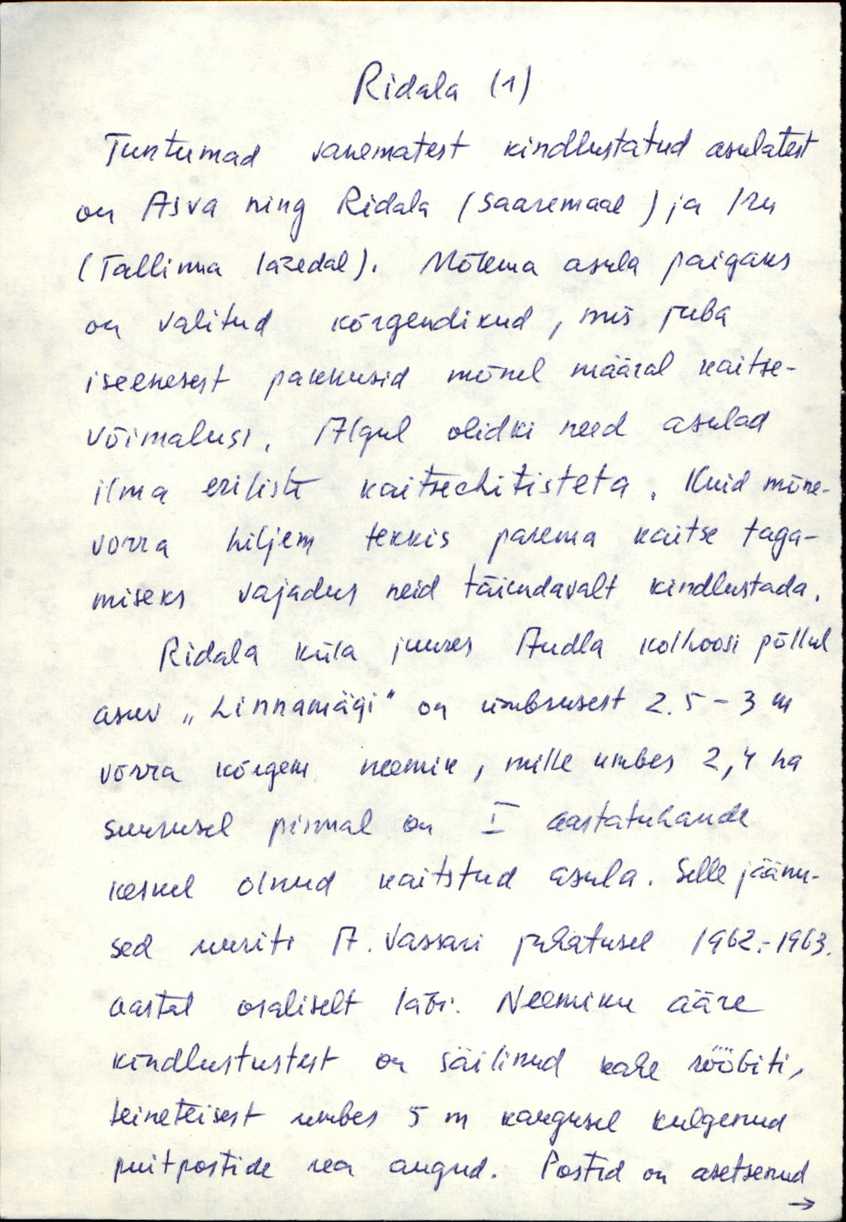 Ridala (1)
Tuntumad vanematest kindlustatud asulatest
on Asva ning Ridala (Saaremaal) ja Iru
(Tallinna lähedal). Mõlema asula paigaks
on valitud kõrgendikud, mis juba
iseenesest pakkusid mõnel määral kaitse-
võimalusi. Algul olidki need asulad
ilma eriliste kaitseehitisteta. Kuid mõne-
võrra hiljem tekkis parema kaitse taga-
miseks vajadus neid täiendavalt kindlustada.
Ridala küla juures Audla kolhoosi põllul
asuv „Linnamägi" on ümbrusest 2.5 - 3 m
võrra kõrgem neemik, mille umbes 2,4 ha
suurusel pinnal on I aastatuhande
keskel olnud kaitstud asula. Selle jäänu-
sed uuriti A. Vassari juhatusel 1962.-1963.
aastal osaliselt läbi. Neemiku ääre
kindlustustest on säilinud kahe rööbiti,
teineteisest umbes 5 m kaugusel kulgenud
puitpostide rea augud. Postid on asetsenud
→